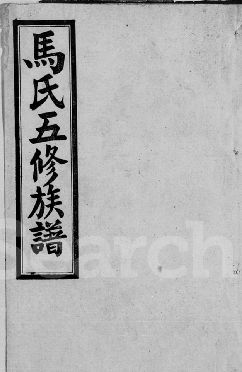 馬氏五修族譜
Search